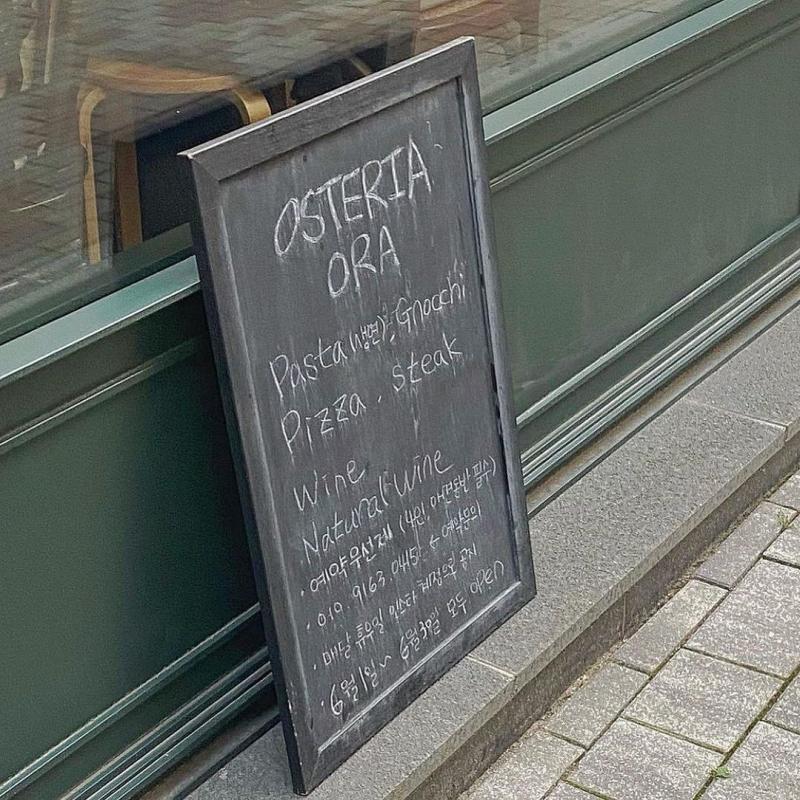 OSTERIA
ORA
Pasta (생면). Gnocchi
Pizza. steak
Wine
Natural Wine
· 예약우선제 (4인, 필수)
· 010. 9163. 045 ← 예약문의
· 매달 휴무일 인스타 계정으로 공지
· 6월1일~ 6월30일 모두 open